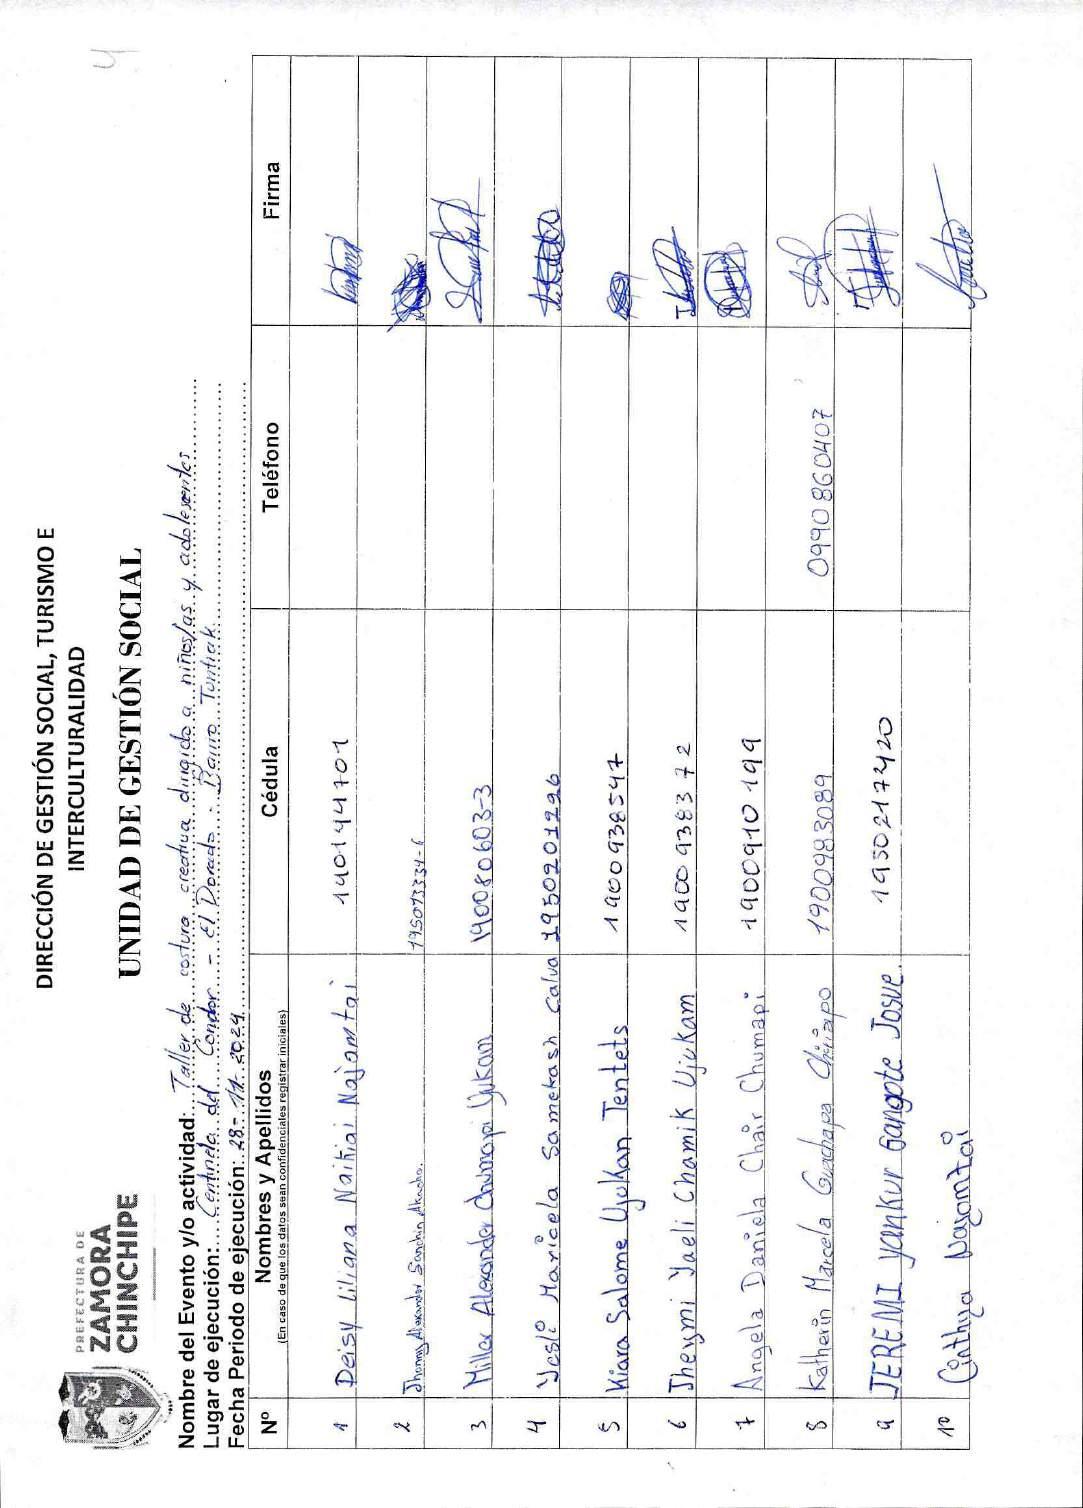 4
PREFECTURA DE
ZAMORA
CHINCHIPE
DIRECCIÓN DE GESTIÓN SOCIAL, TURISMO E
INTERCULTURALIDAD
UNIDAD DE GESTIÓN SOCIAL
Nombre del Evento y/o actividad: Taller de costura creativa dirigido a niños/as y adolesentes
Lugar de ejecución: Centinela del Condor - El Dorado - Barrio Tuntiak
Fecha Periodo de ejecución: 28-11-2024
Nº Nombres y Apellidos Cédula Teléfono Firma
(En caso de que los datos sean confidenciales registrar iniciales)
1 Deisy Liliana Naikiai Najamtai 140144701
2 Jhonny Alexander Sanchin Akacho. 195073334-6
3 Miller Alexander Chumapi Yukam 190080603-3
4 Yesli Maricela Samekash Calva 1950201296
5 Kiara Salome Ujukan Tentets 1900938547
6 Jheymi Yaeli Chamik Ujukam 1900938372
7 Angela Daniela Chair Chumapi 1900910199
8 Katherin Marcela Guachapa Chiriapo 1900983089 0990860407
9 JEREMI yankur Gangote Josue 1950217420
10 Cinthya Najamtai